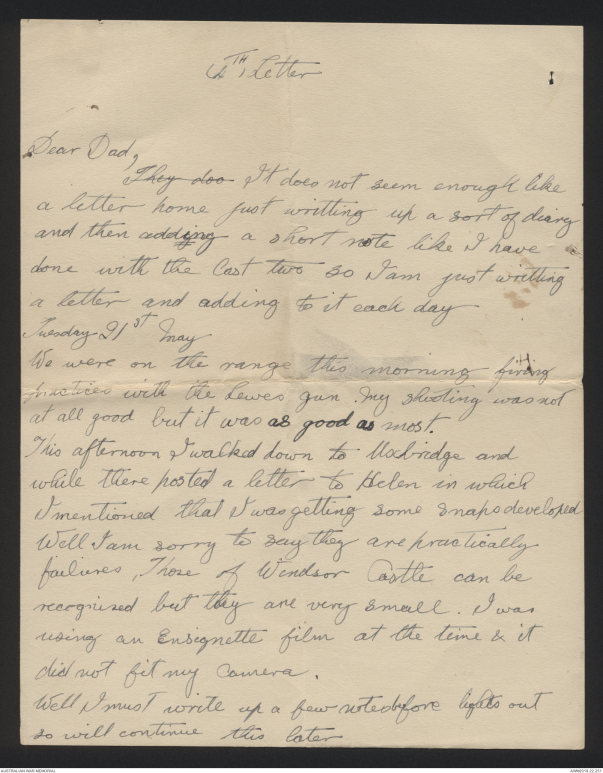 4TH Letter
Dear Dad,
They doo It does not seem enough like
a letter home just writting up a sort of diary
and then adding a short note like I have
done with the last two so I am just writting
a letter and adding to it each day
Tuesday 21st May
We were on the range this morning firing
practices with the Lewes gun. My shooting was not
at all good but it was as good as most.
This afternoon I walked down to Uxbridge and
while there posted a letter to Helen in which
I mentioned that I was getting some snaps developed
Well I am sorry to say they are practically
failures, Those of Windsor Castle can be
recognised but they are very small. I was
using an Ensignette film at the time & it
did not fit my camera.
Well I must write up a few notes before lights out
so will continue this later
AUSTRALIAN WAR MEMORIAL